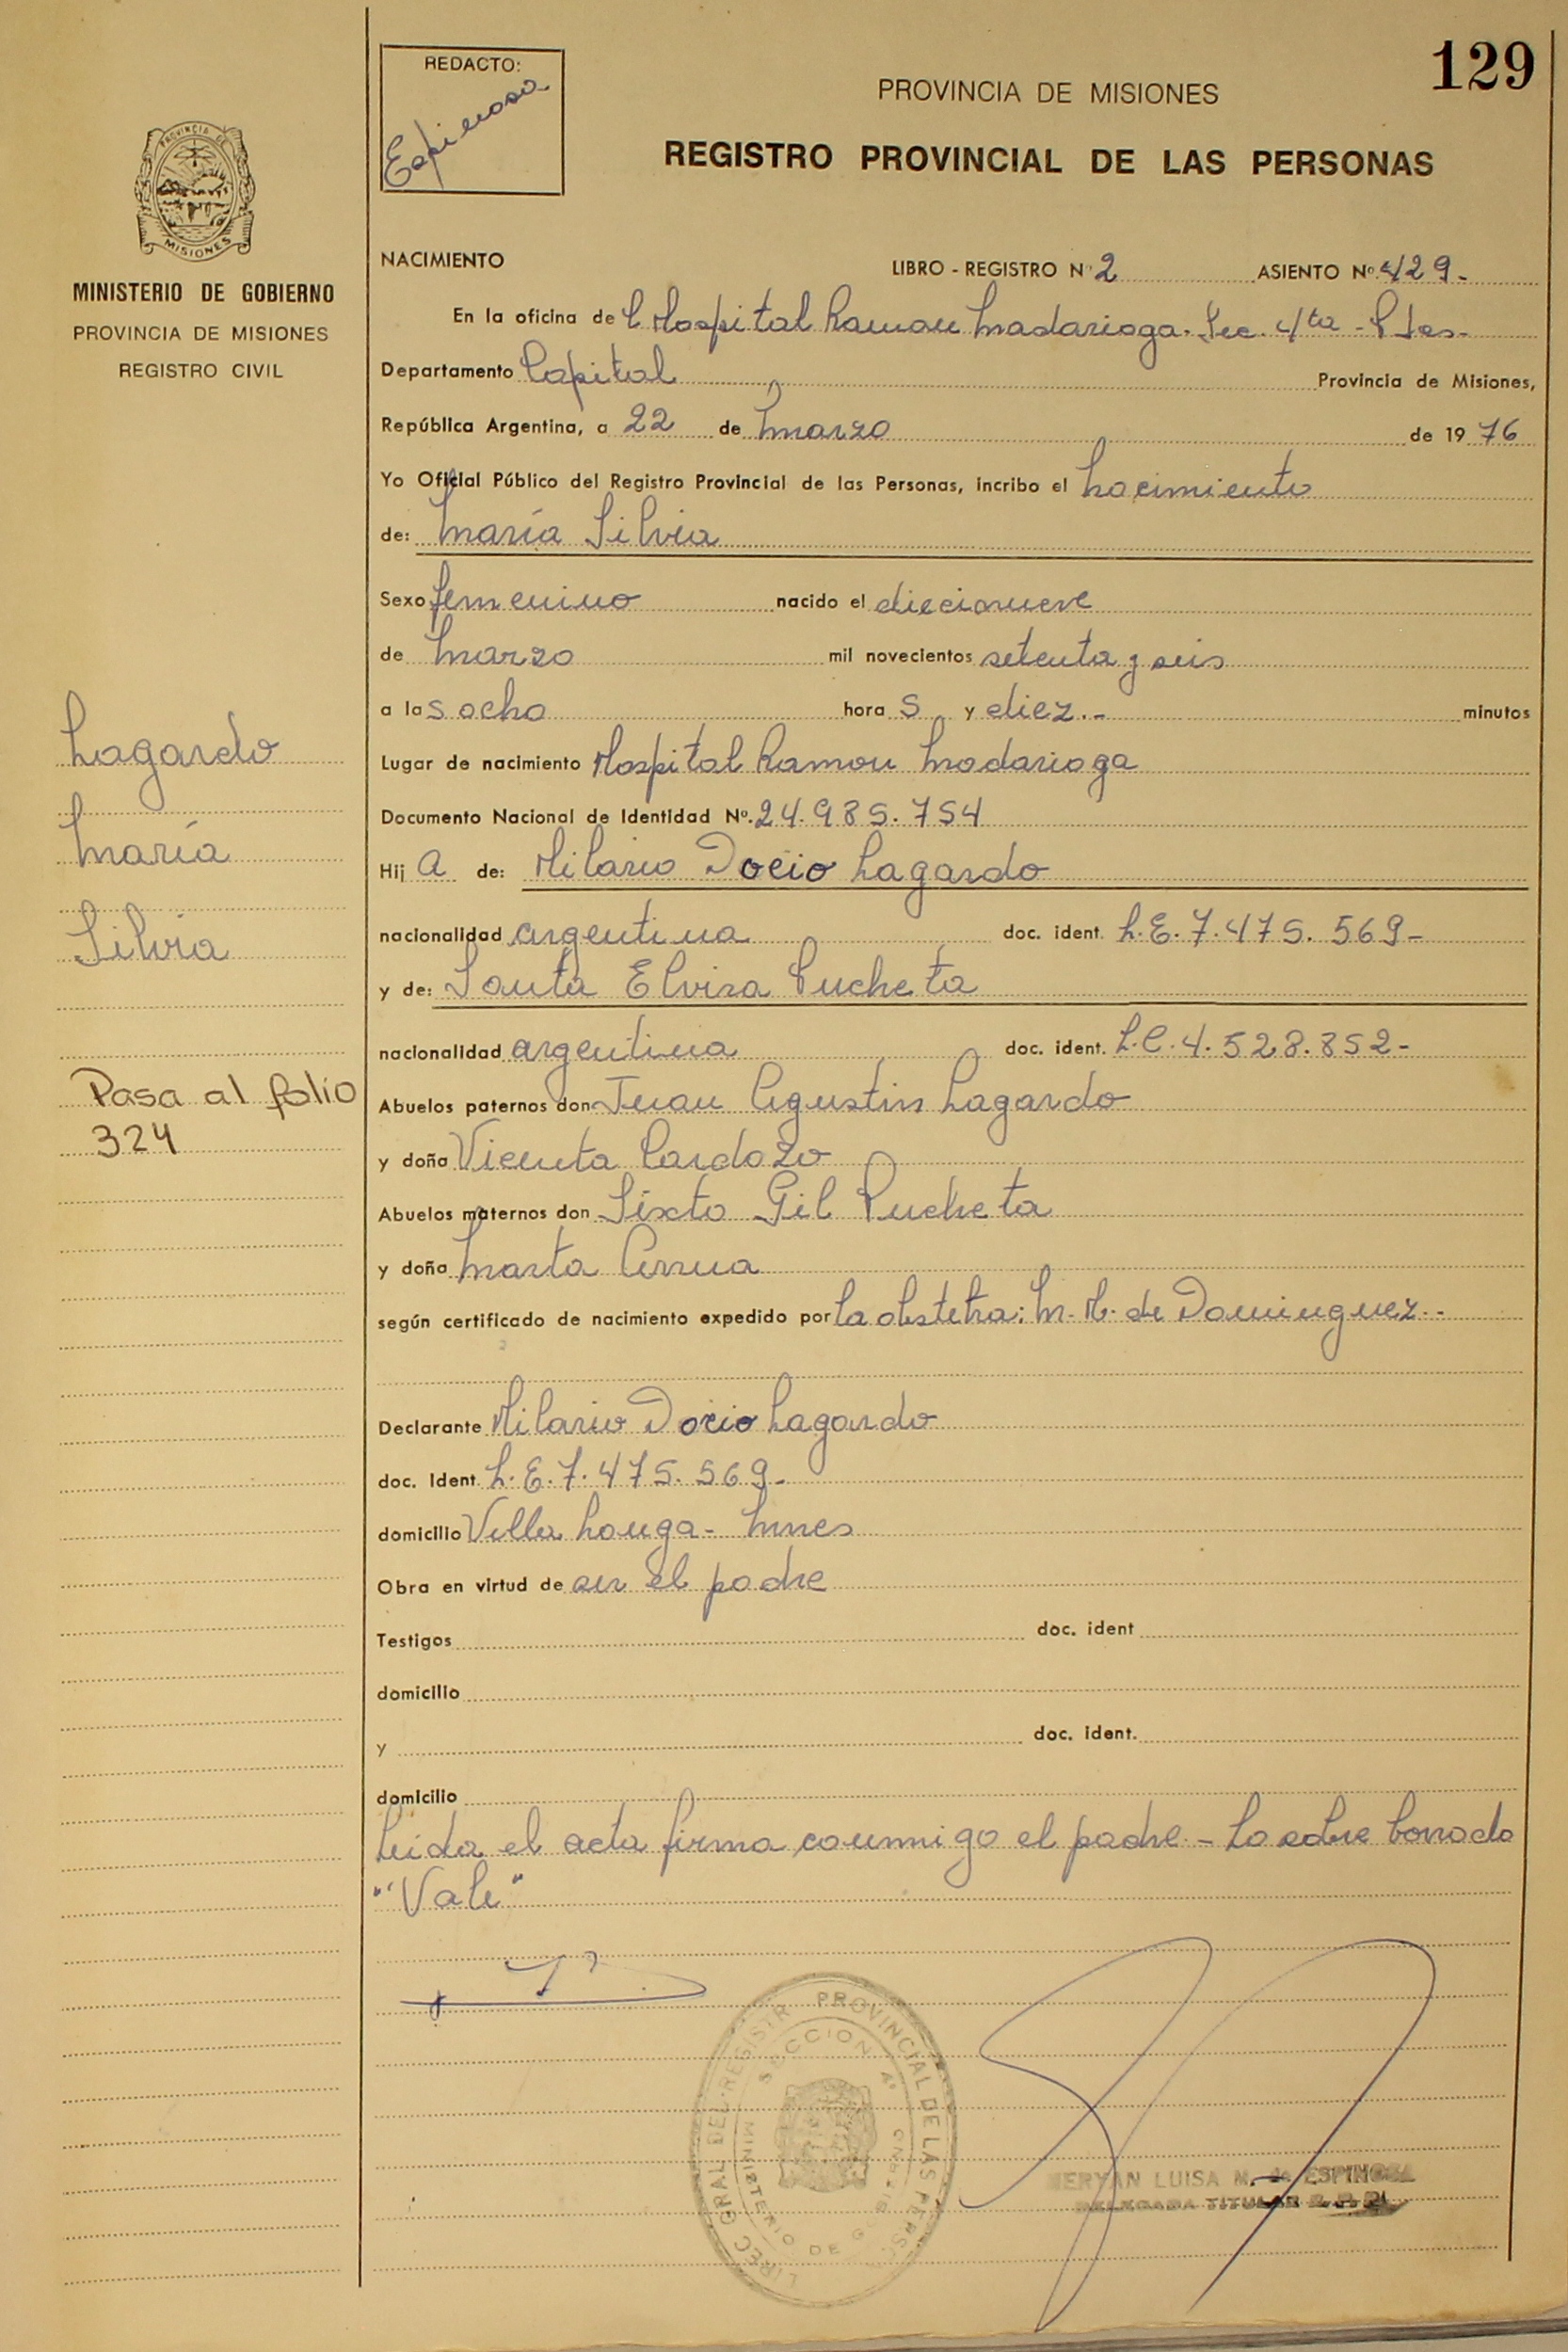 129
REDACTO:
Espinosa
PROVINCIA DE MISIONES
REGISTRO PROVINCIAL DE LAS PERSONAS
PROVINCIA DE
MISIONES
MINISTERIO DE GOBIERNO
PROVINCIA DE MISIONES
REGISTRO CIVIL
NACIMIENTO LIBRO - REGISTRO Nº 2 ASIENTO Nº 429-
En la oficina de Hospital Ramon Madariaga. Sec. 4ta - Pdas-
Departamento Capital Provincia de Misiones,
República Argentina, a 22 de Marzo de 1976
Yo Oficial Público del Registro Provincial de las Personas, incribo el Nacimiento
de: María Silvia
Sexo femenino nacido el diecinueve
de Marzo mil novecientos setenta y seis
a las ocho horas y diez.- minutos
Lugar de nacimiento Hospital Ramon Madariaga
Documento Nacional de Identidad Nº. 24.985.754
Hija de: Hilario Docio Lagardo
nacionalidad argentina doc. ident. L.E. 7.475.569-
y de: Santa Elvira Pucheta
nacionalidad argentina doc. ident. L.C. 4.528.852-
Abuelos paternos don Juan Agustin Lagardo
y doña Vicenta Cardozo
Abuelos maternos don Sixto Gil Pucheta
y doña Marta Arrua
según certificado de nacimiento expedido por la obstetra: M. H. de Dominguez.-
Declarante Hilario Docio Lagardo
doc. Ident. L.E. 7.475.569-
domicilio Villa Longa - Mnes
Obra en virtud de ser el padre
Testigos doc. ident
domicilio
y doc. ident.
domicilio
Leida el acta firma conmigo el padre - Lo sobre borrado
"Vale"
Lagardo
María
Silvia
Pasa al folio
324
DIREC GRAL DEL REGISTR PROVINCIAL DE LAS PERS
SECCION 4º
MINISTERIO DE GOB
LUISA M. de ESPINOSA
DELEGADA TITULAR R.P.P.